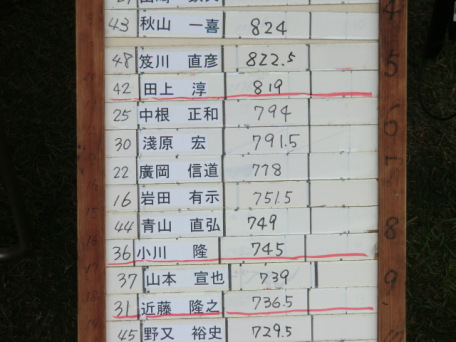 43 秋山 一喜 824
48 笈川 直彦 822.5
42 田上 淳 819
25 中根 正和 794
30 淺原 宏 791.5
22 廣岡 信道 778
16 岩田 有示 751.5
44 青山 直弘 749
36 小川 隆 745
37 山本 宣也 739
31 近藤 隆之 736.5
45 野又 裕史 729.5